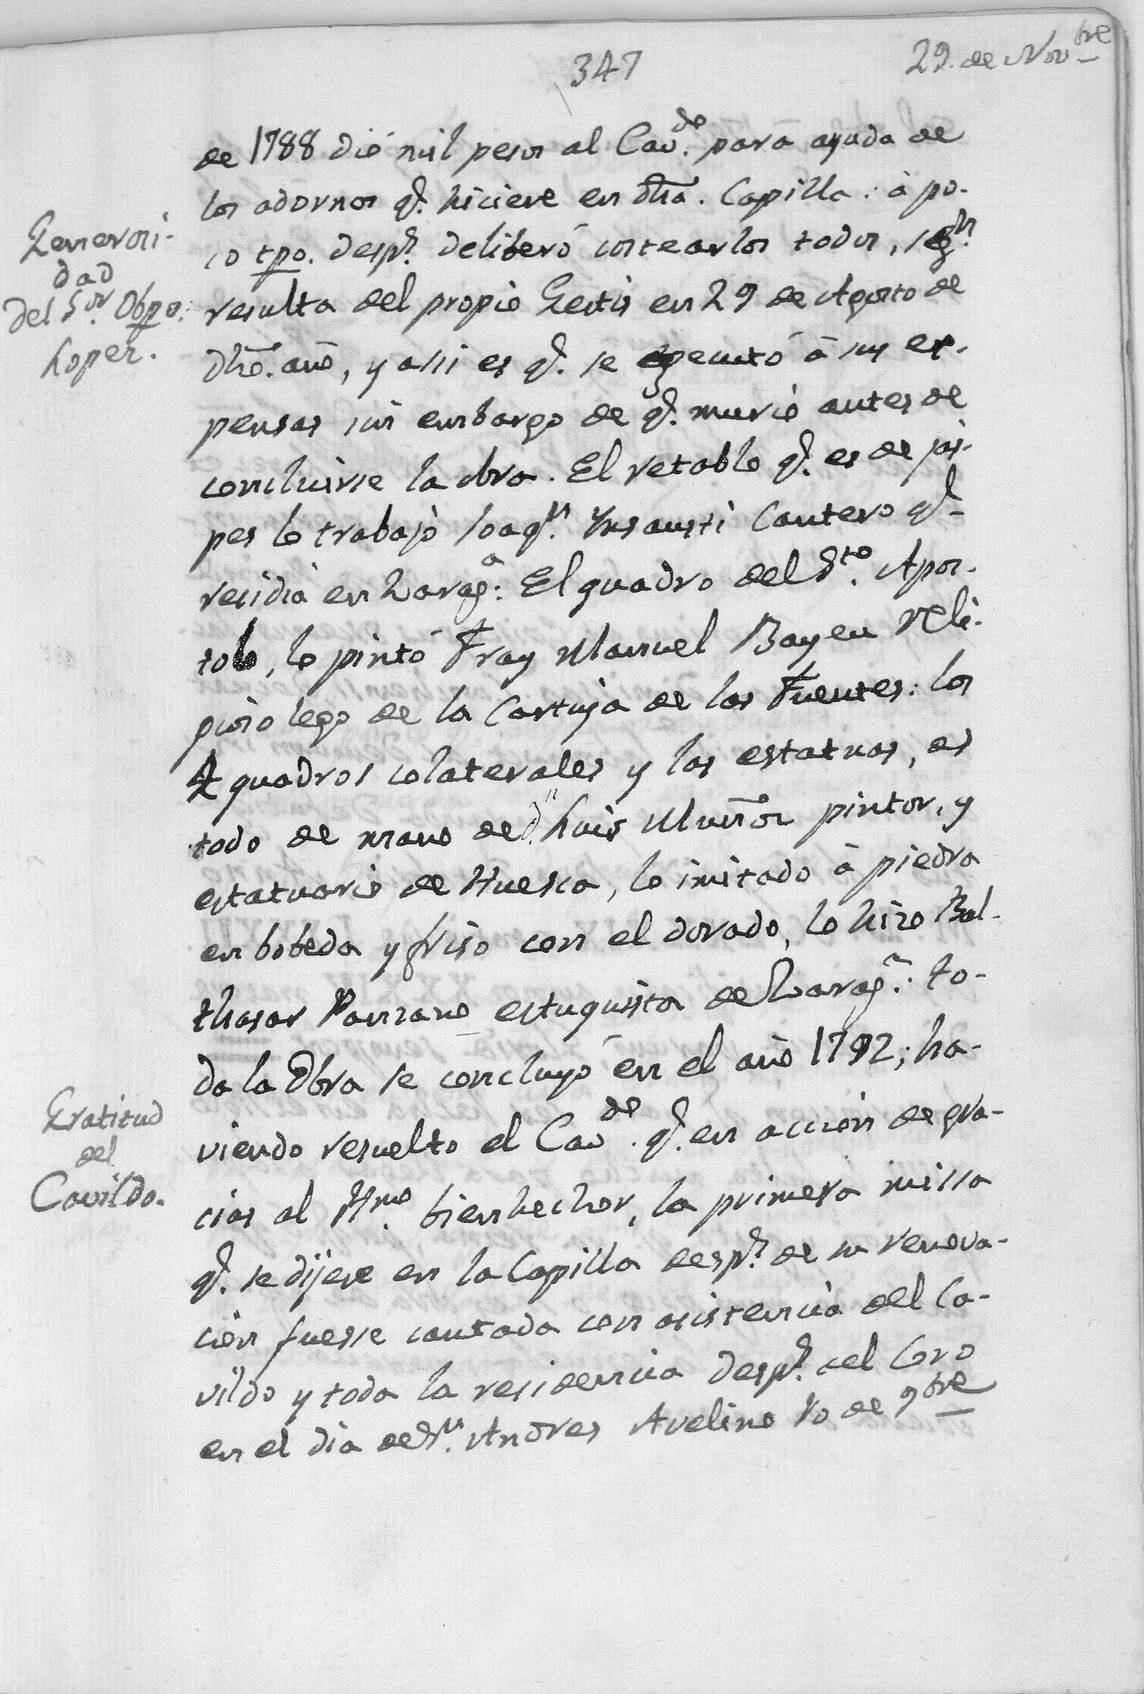 347
29. de Nov.bre
de 1788 dió mil pesos al Cav.do para ayuda de
los adornos q.e hiciere en dha. Capilla: à po-
co tpo. desp.s deliberó costearlos todos, seg.n
resulta del propio Gestis en 29 de Agosto de
dho. año, y assi es q.e se egecutó à sus ex-
pensas sin embargo de q.e murió antes de
concluirse la obra. El retablo q.e es de jas-
pes lo trabajó Joaq.n Ynsausti Cantero q.e
residia en Zarag.a: El quadro del S.to Apos-
tol, lo pintó Fray Manuel Bayeu Reli-
gioso lego de la Cartuja de las Fuentes: los
4 quadros colaterales y las estatuas, es
todo de mano de d.n Luis Muñoz pintor, y
estatuario de Huesca, lo imitado à piedra
en bobeda y friso con el dorado, lo hizo Bal-
thasar Panzano estuquista de Zarag.a: to-
da la Obra se concluyó en el año 1792; ha-
viendo resuelto el Cav.do q.e en acción de gra-
cias al Yll.mo bienhechor, la primera missa
q.e se dijese en la Capilla desp.s de su renova-
ción fuesse cantada con asistencia del Ca-
vildo y toda la residencia desp.s del Coro
en el dia de S.n Andres Avelino 10 de 9bre
Generosi-
dad
del S.or Obpo.
Lopez.
Gratitud
del
Cavildo.